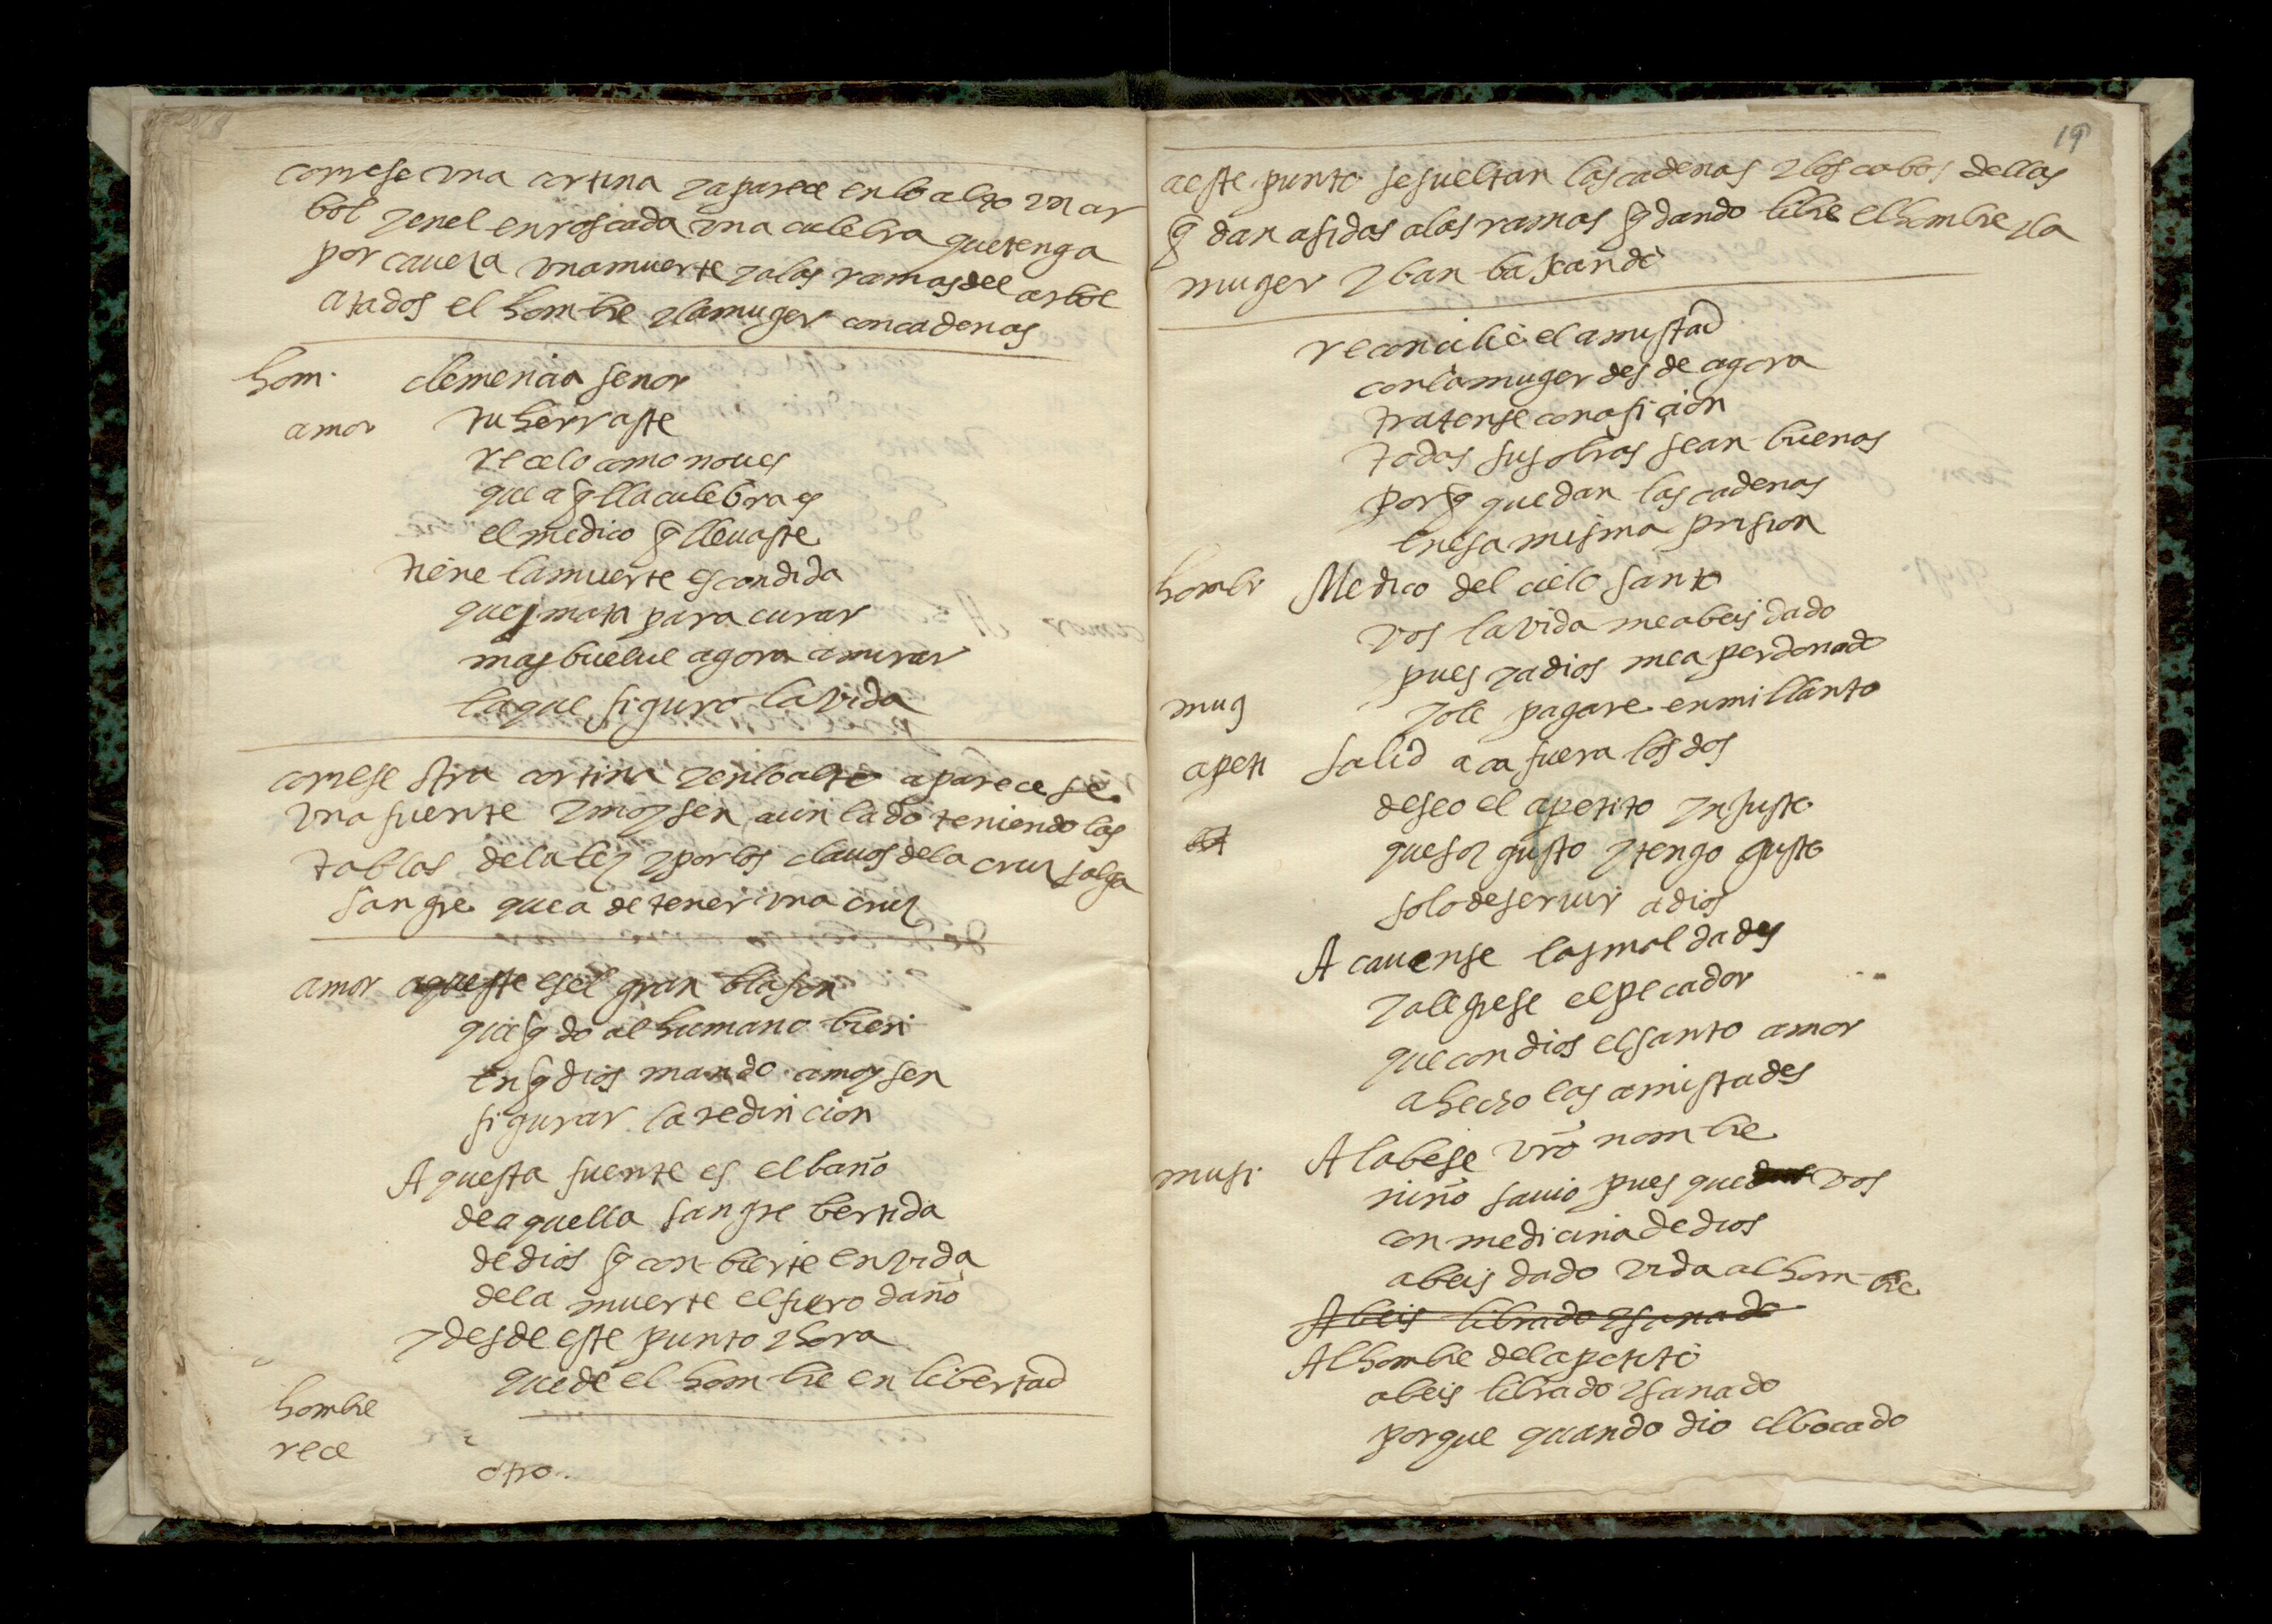 correse una cortina y aparece en lo alto un ar
bol y en el enroscada una culebra que tenga
por caueza una muerte y a las ramas del arbol
atados el hombre y la muger con cadenas
hom. clemencia señor
amor tu herraste
recelo como no ues
que aqlla culebra es
el medico q lleuaste
tiene la muerte escondida
ques mata para curar
mas buelue agora a mirar
la que figuro la vida
correse otra cortina y en lo alto aparecese
una fuente y moysen a un lado teniendo las
tablas de la ley y por los clauos de la cruz salga
sangre que a de tener una cruz
amor aqueste es el gran blason
que qdo al humano bien
en q dios mando a moysen
figurar la redincion
Aquesta fuente es el baño
de aquella sangre bertida
de dios q conbierte en vida
de la muerte el fiero daño
y desde este punto y hora
quede el hombre en libertad
hombre
rece
otro.
19
a este punto se sueltan las cadenas y los cabos dellas
qdan asidos a las ramas qdando libre el hombre y la
muger y ban baxando
reconcilie el amistad
con la muger desde agora
tratense con aficion
todas sus obras sean buenas
porq quedan las cadenas
en esa misma prision
hombr Medico del cielo santo
vos la vida me abeis dado
pues ya dios me a perdonado
mug yo le pagare en mi llanto
apeti salid aca fuera los dos
deseo el apetito injusto
que soy gusto y tengo gusto
solo de seruir a dios
Acauense las maldades
y alegrese el pecador
que con dios el santo amor
a hecho las amistades
musi. Alabese vro nombre
niño sauio pues que vos
con medicina de dios
abeis dado vida al hombre
Abeis librado y sanado
Al hombre del apetito
abeis librado y sanado
porque quando dio el bocado